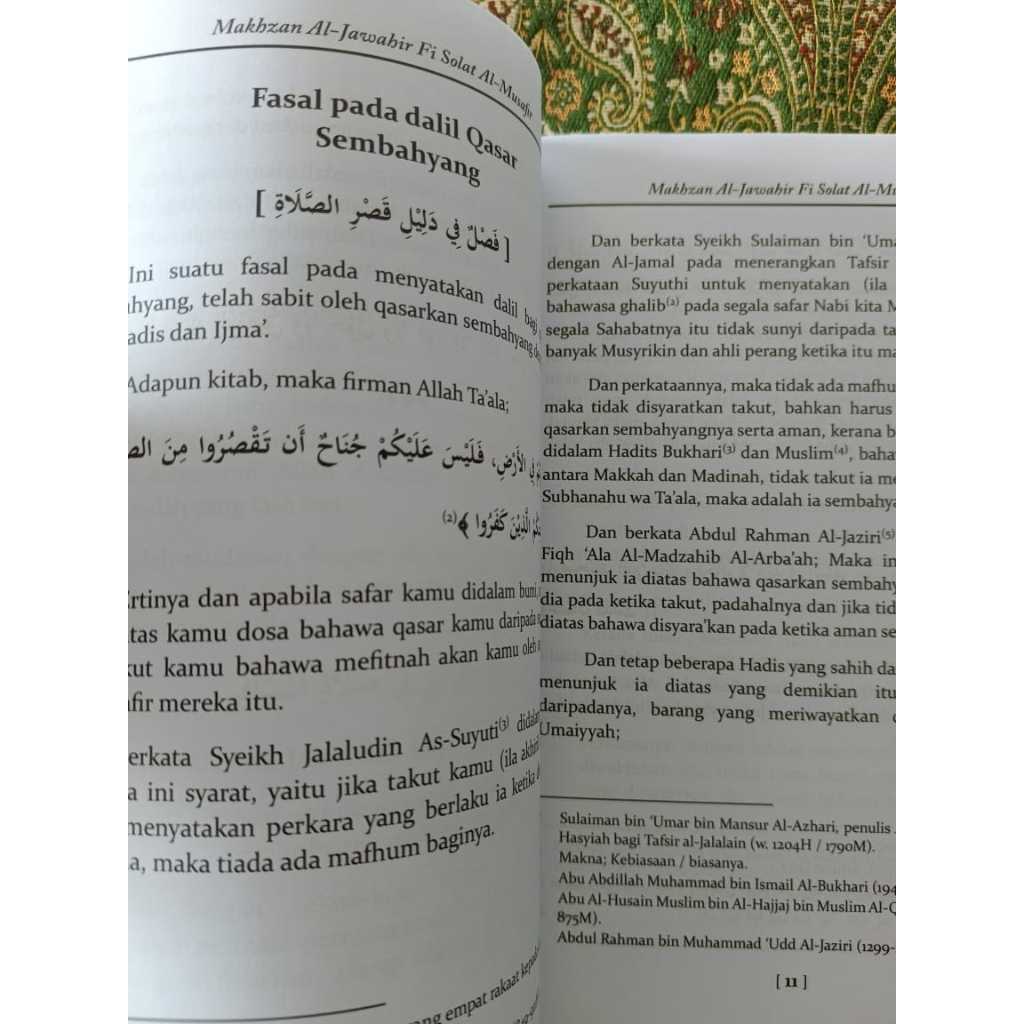 Makhzan Al-Jawahir Fi Solat Al-Musafir
Fasal pada dalil Qasar
Sembahyang
[ فَصْلٌ فِي دَلِيْلِ قَصْرِ الصَّلَاةِ ]
Ini suatu fasal pada menyatakan dalil bagi
hyang, telah sabit oleh qasarkan sembahyang
adis dan Ijma’.
Adapun kitab, maka firman Allah Ta’ala;
فِي الأَرْضِ، فَلَيْسَ عَلَيْكُمْ جُنَاحٌ أَن تَقْصُرُوا مِنَ
الَّذِيْنَ كَفَرُوا ﴾(2)
rtinya dan apabila safar kamu didalam bumi,
tas kamu dosa bahawa qasar kamu daripada
kut kamu bahawa mefitnah akan kamu oleh
fir mereka itu.
erkata Syeikh Jalaludin As-Suyuti(3) didalam
a ini syarat, yaitu jika takut kamu (ila akhir
menyatakan perkara yang berlaku ia ketika
a, maka tiada ada mafhum baginya.
ng empat rakaat kepada
Makhzan Al-Jawahir Fi Solat Al-Mu
Dan berkata Syeikh Sulaiman bin ‘Uma
dengan Al-Jamal pada menerangkan Tafsir
perkataan Suyuthi untuk menyatakan (ila
bahawasa ghalib(2) pada segala safar Nabi kita M
segala Sahabatnya itu tidak sunyi daripada ta
banyak Musyrikin dan ahli perang ketika itu ma
Dan perkataannya, maka tidak ada mafhu
maka tidak disyaratkan takut, bahkan harus
qasarkan sembahyangnya serta aman, kerana b
didalam Hadits Bukhari(3) dan Muslim(4), baha
antara Makkah dan Madinah, tidak takut ia me
Subhanahu wa Ta’ala, maka adalah ia sembahya
Dan berkata Abdul Rahman Al-Jaziri(5)
Fiqh ‘Ala Al-Madzahib Al-Arba’ah; Maka in
menunjuk ia diatas bahawa qasarkan sembahy
dia pada ketika takut, padahalnya dan jika tid
diatas bahawa disyara’kan pada ketika aman se
Dan tetap beberapa Hadis yang sahih da
menunjuk ia diatas yang demikian itu
daripadanya, barang yang meriwayatkan
Umaiyyah;
Sulaiman bin ‘Umar bin Mansur Al-Azhari, penulis
Hasyiah bagi Tafsir al-Jalalain (w. 1204H / 1790M).
Makna; Kebiasaan / biasanya.
Abu Abdillah Muhammad bin Ismail Al-Bukhari (194
Abu Al-Husain Muslim bin Al-Hajjaj bin Muslim Al-Q
875M).
Abdul Rahman bin Muhammad ‘Udd Al-Jaziri (1299-
[ 11 ]